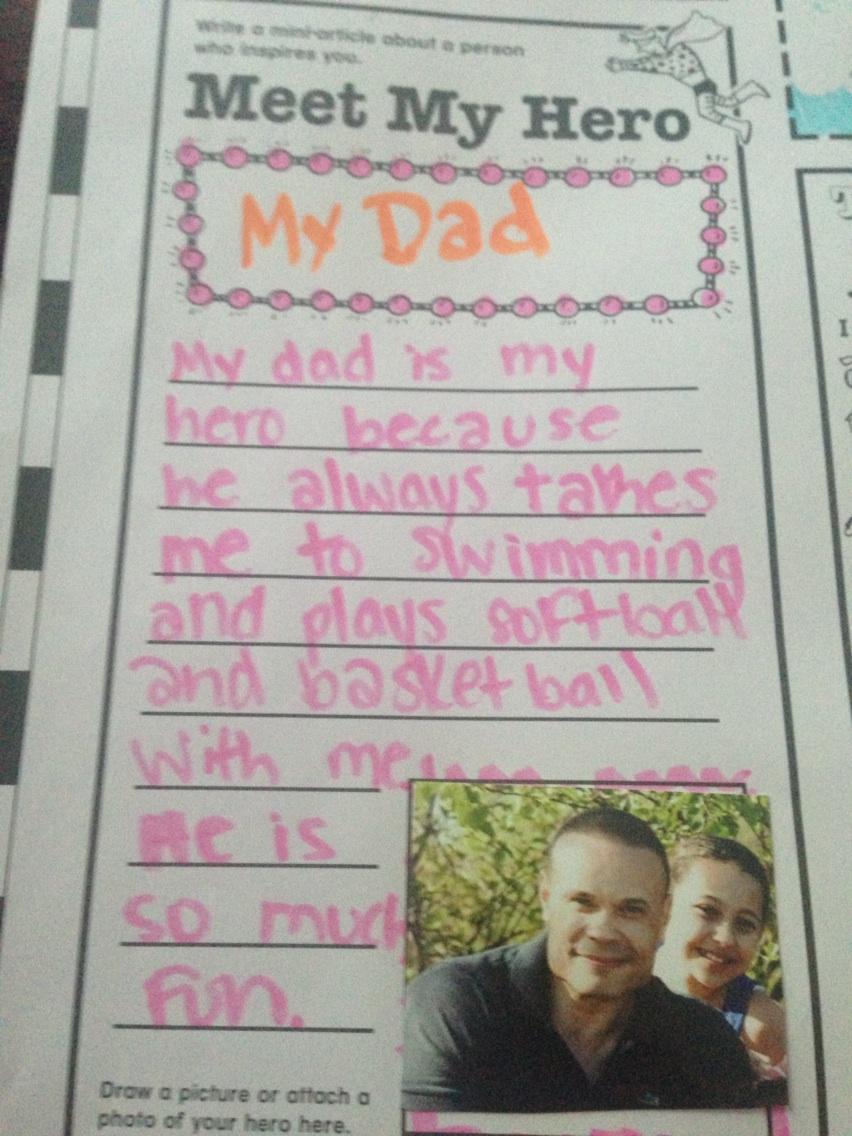 Write a mini-article about a person
who inspires you.
Meet My Hero
My Dad
My dad is my
hero because
he always takes
me to swimming
and plays softball
and basketball
With me
He is
so much
Fun.
Draw a picture or attach a
photo of your hero here.